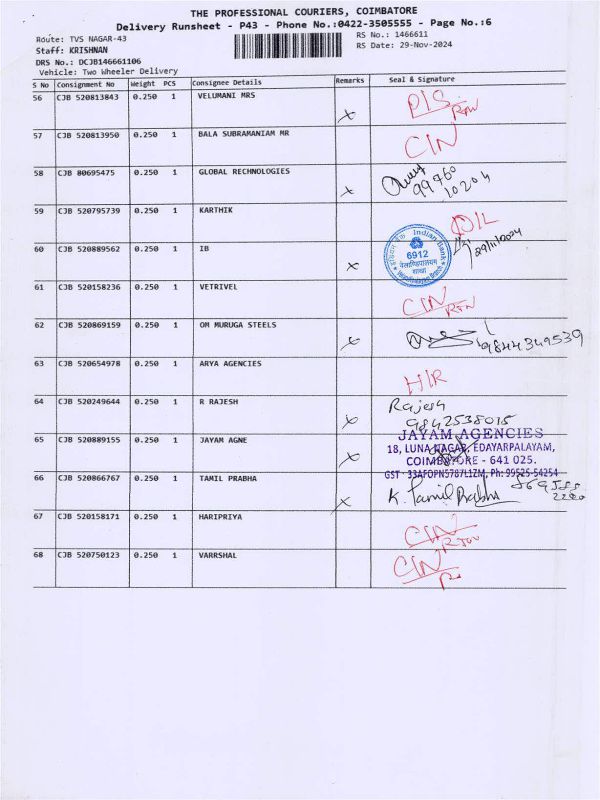 THE PROFESSIONAL COURIERS, COIMBATORE
Delivery Runsheet - P43 - Phone No.:0422-3505555 - Page No.:6
Route: TVS NAGAR-43 RS No.: 1466611
Staff: KRISHNAN RS Date: 29-Nov-2024
DRS No.: DCJB146661106
Vehicle: Two Wheeler Delivery
S No Consignment No Weight PCS Consignee Details Remarks Seal & Signature
56 CJB 520813843 0.250 1 VELUMANI MRS x
57 CJB 520813950 0.250 1 BALA SUBRAMANIAM MR CIN
58 CJB 80695475 0.250 1 GLOBAL RECHNOLOGIES x 99760
10204
59 CJB 520795739 0.250 1 KARTHIK
29/11/2024
60 CJB 520889562 0.250 1 IB x Indian Bank
6912
शाखा
61 CJB 520158236 0.250 1 VETRIVEL CIN
RTN
62 CJB 520869159 0.250 1 OM MURUGA STEELS x 9844349539
63 CJB 520654978 0.250 1 ARYA AGENCIES
64 CJB 520249644 0.250 1 R RAJESH x Rajesh
9842538015
65 CJB 520889155 0.250 1 JAYAM AGNE x JAYAM AGENCIES
18, LUNA NAGAR, EDAYARPALAYAM,
COIMBATORE - 641 025.
GST : 33AFOPN5787L1ZM, Ph: 99525-54254
66 CJB 520866767 0.250 1 TAMIL PRABHA x K. Tamil Prabha
67 CJB 520158171 0.250 1 HARIPRIYA CIN
RTN
68 CJB 520750123 0.250 1 VARRSHAL CIN